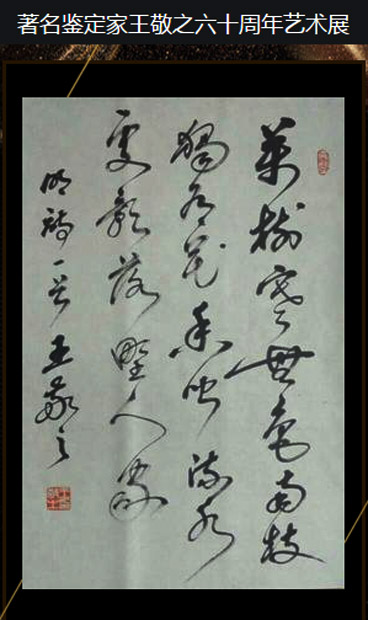 著名鉴定家王敬之六十周年艺术展
萬樹寒無色南枝
獨有花香聞流水
處影落野人家
明詩一首 王敬之